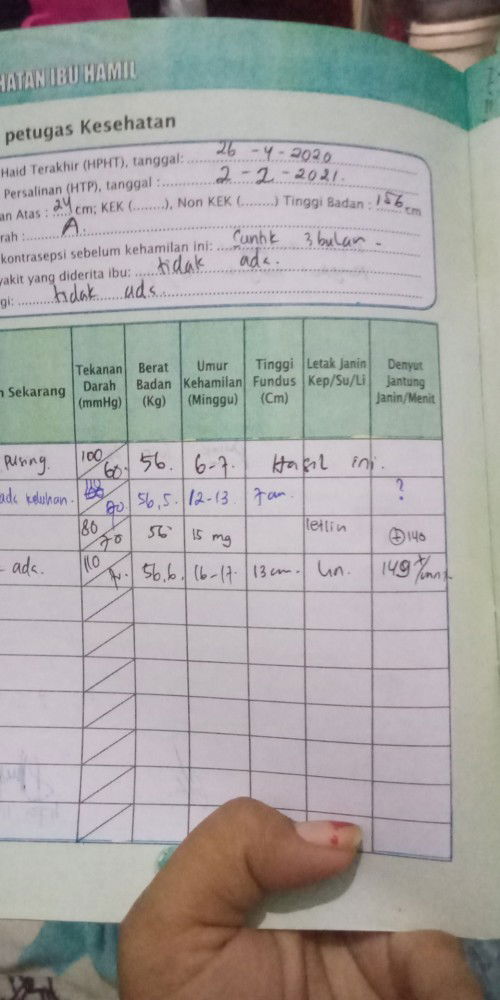 HATAN IBU HAMIL
petugas Kesehatan
Haid Terakhir (HPHT), tanggal: 26 - 4 - 2020
Persalinan (HTP), tanggal : 2 - 2 - 2021.
an Atas : 24 cm; KEK (........), Non KEK (........) Tinggi Badan : 156 cm
rah : A.
kontrasepsi sebelum kehamilan ini: Suntik 3 bulan -
yakit yang diderita ibu: tidak ada.
gi: tidak ada
n Sekarang Tekanan Darah (mmHg) Berat Badan (Kg) Umur Kehamilan (Minggu) Tinggi Fundus (Cm) Letak Janin Kep/Su/Li Denyut Jantung Janin/Menit
Pusing. 100/60. 56. 6-7. Hasil ini.
ada keluhan. 110/80 56,5. 12-13. 7 cm. ?
80/70 56 15 mg letlin ⊕ 140
- ada. 110 56,6. 16-17. 13 cm. Lin. 149